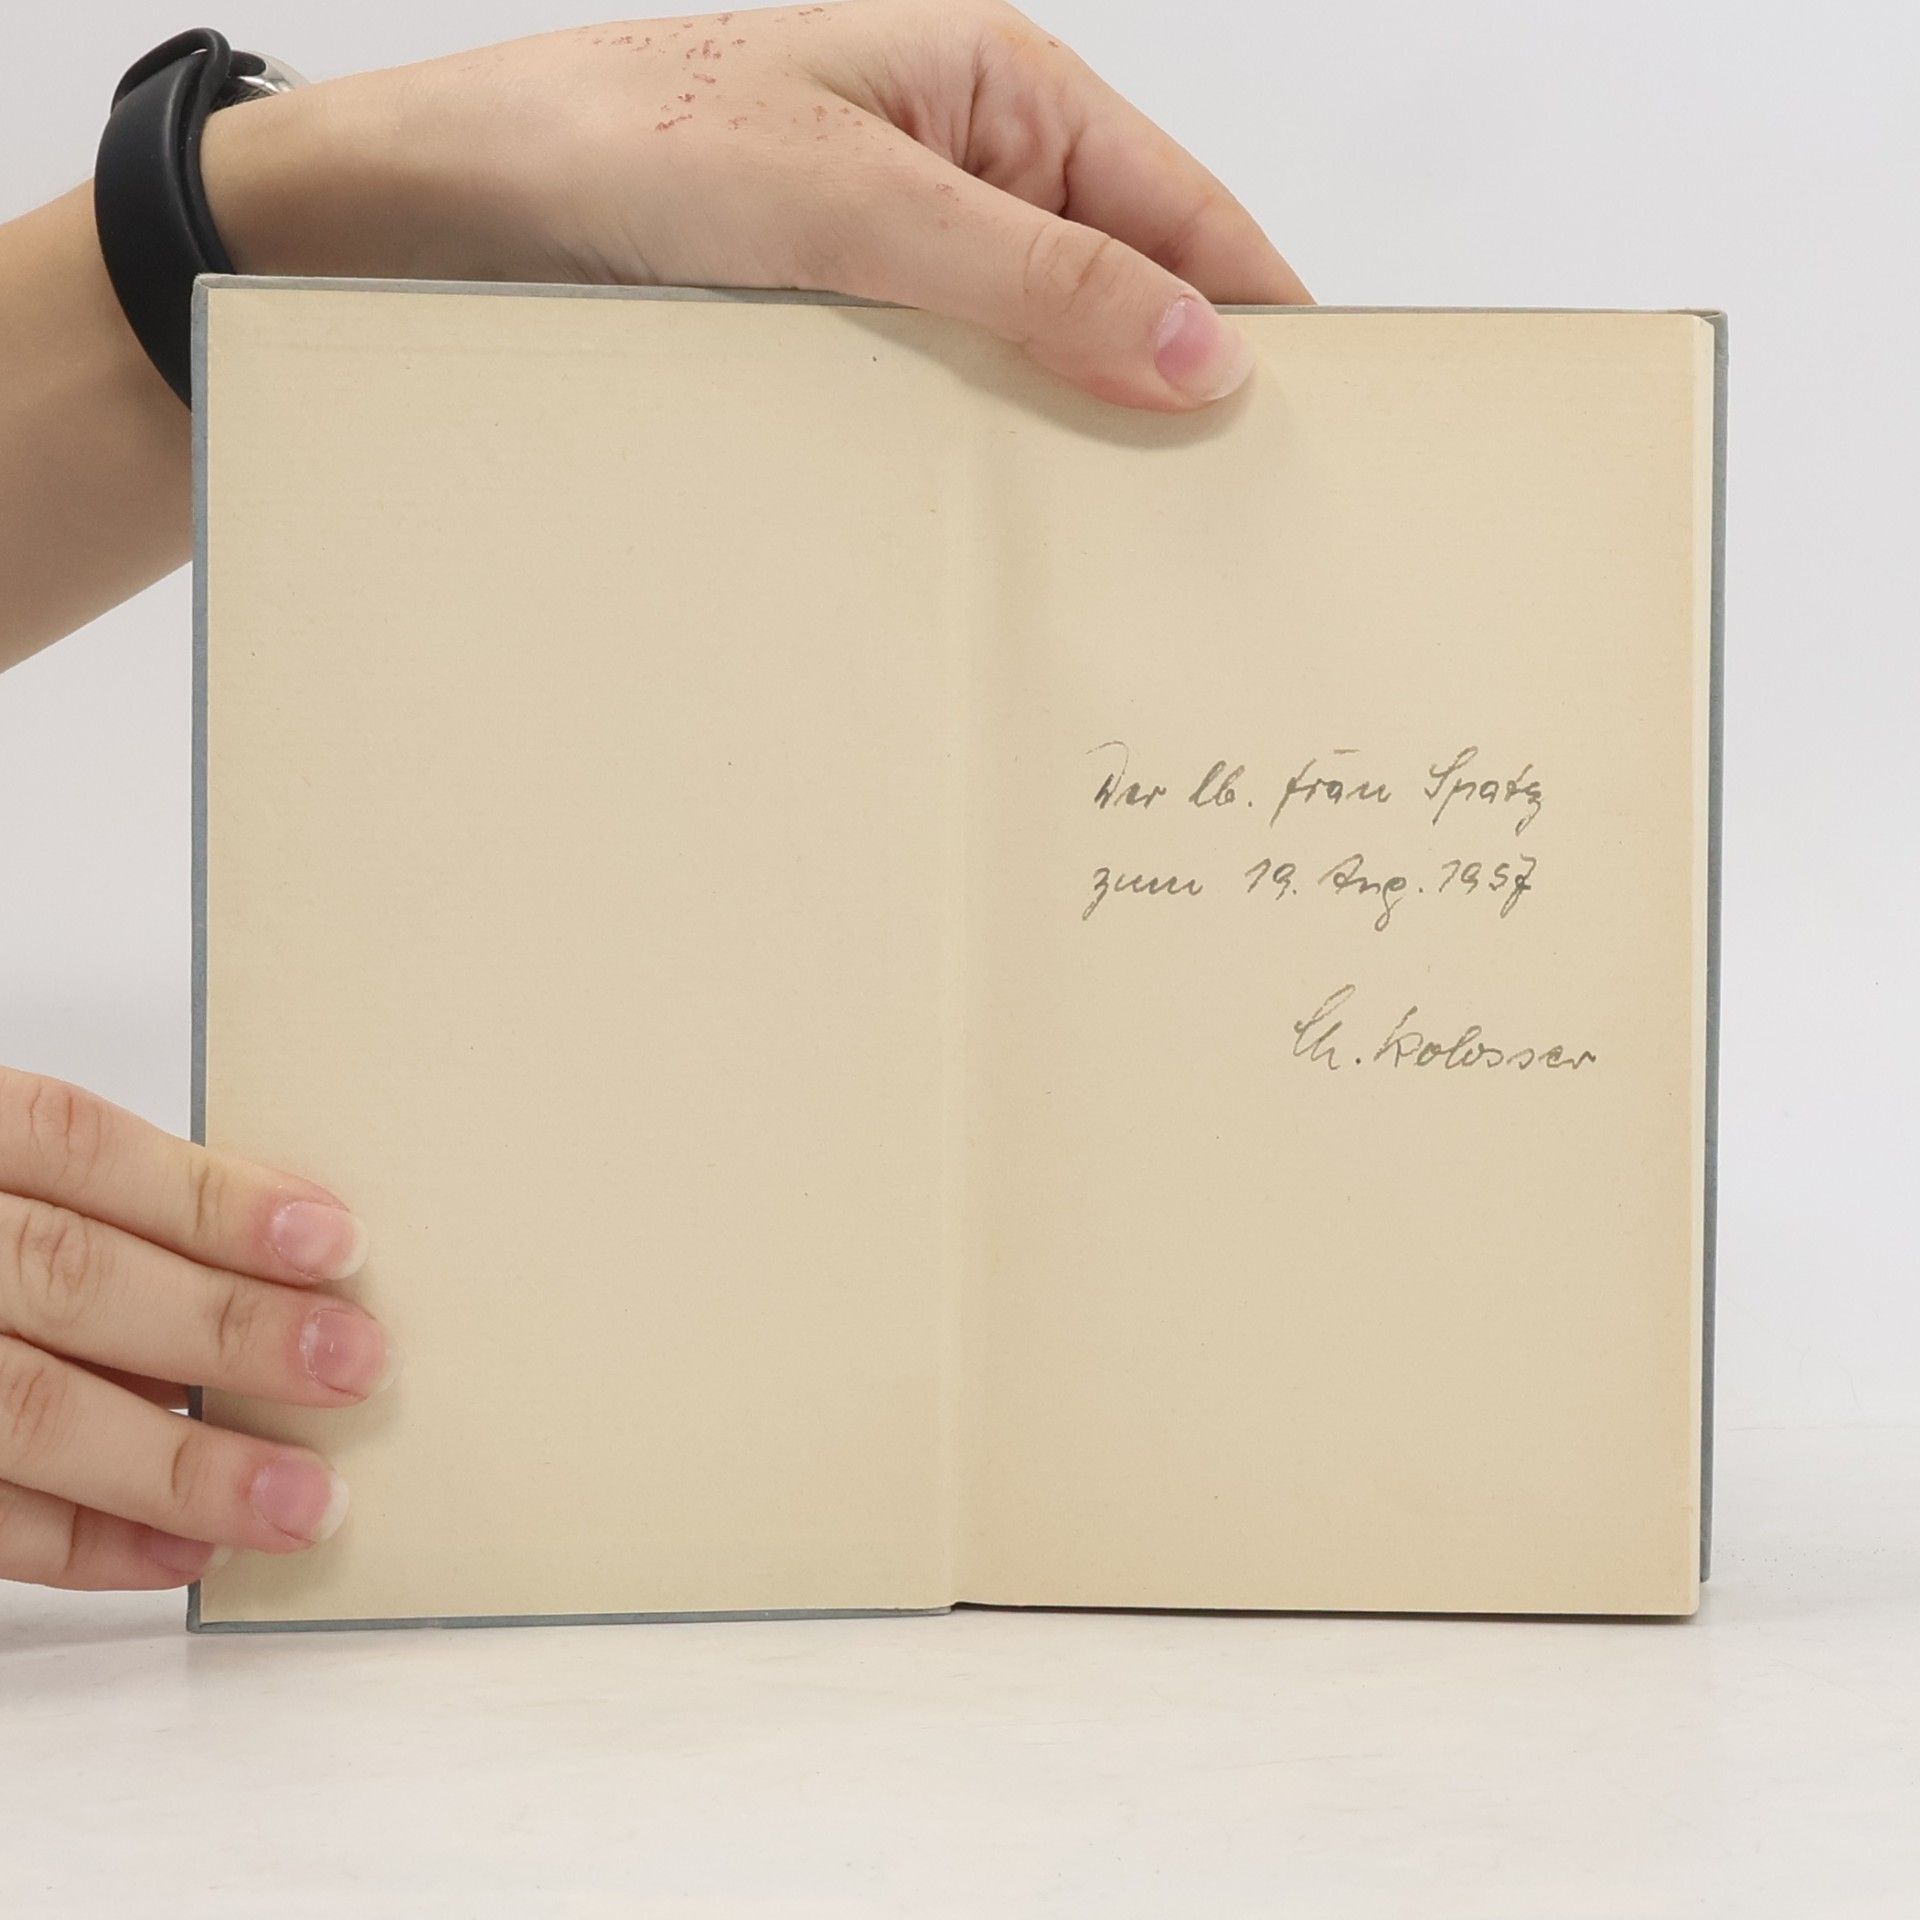 Der lb. Frau Spatz
zum 19. Aug. 1957
Ch. Kolosser